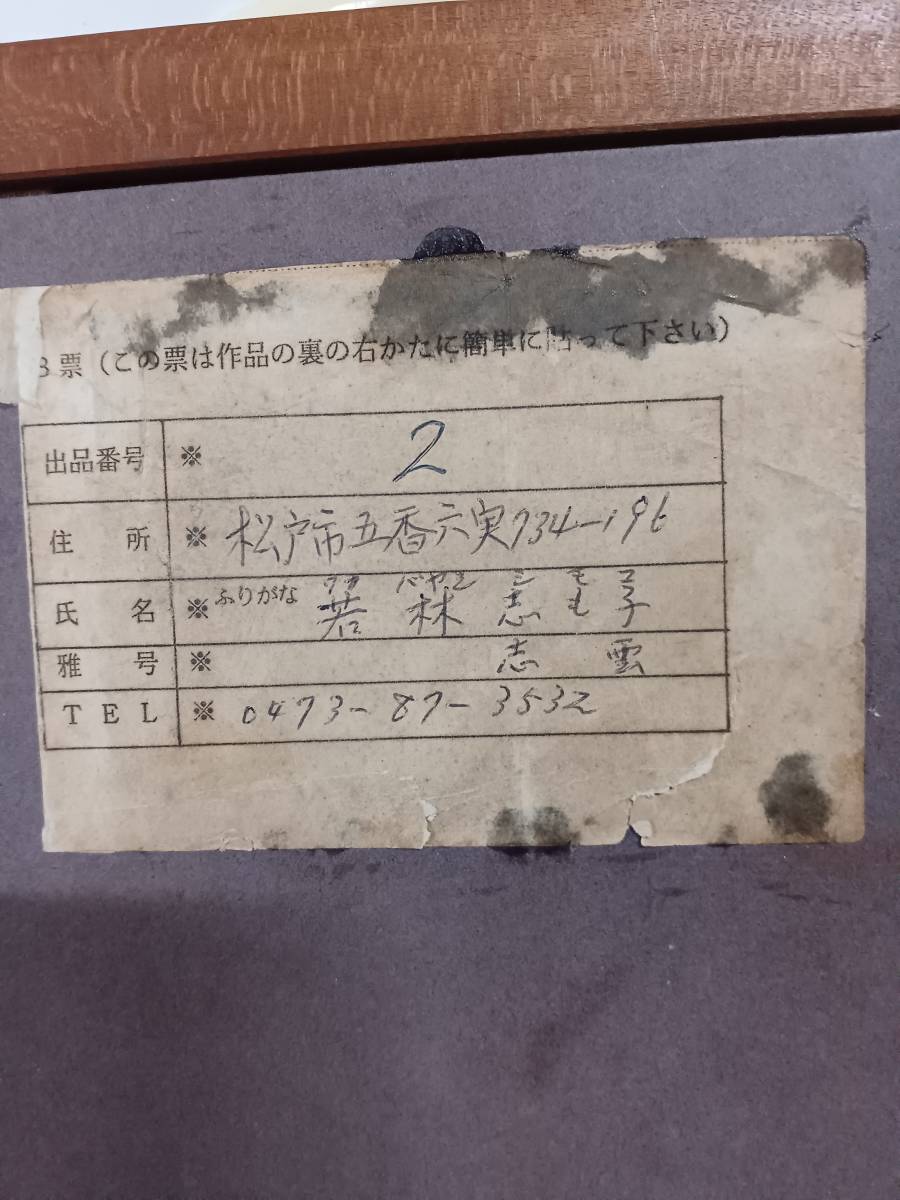 B票（この票は作品の裏の右かたに簡単に貼って下さい）
出品番号 ※ 2
住所 ※ 松戸市五香六実734-196
ワカ バヤシ シ モ コ
氏名 ※ふりがな 若林志も子
雅号 ※ 志雲
TEL ※ 0473-87-3532